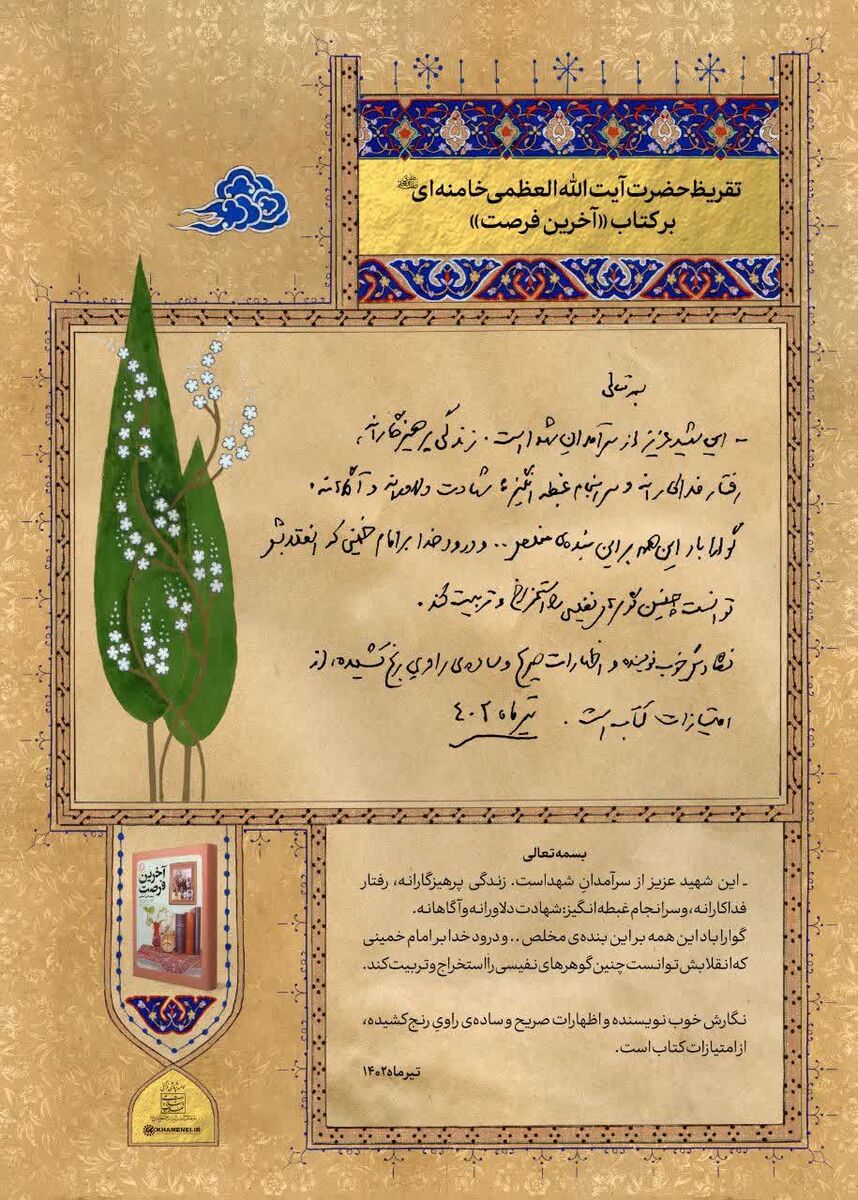 تقریظ حضرت آیت الله العظمی خامنه ای
بر کتاب «آخرین فرصت»
بسمه تعالی
ـ این شهید عزیز از سرآمدانِ شهدا است. زندگی پرهیزگارانه،
رفتار فداکارانه و سرانجام غبطه انگیز: شهادت دلاورانه و آگاهانه.
گوارا باد این همه بر این بنده‌ی مخلص .. و درود خدا بر امام خمینی که انقلابش
توانست چنین گوهرهای نفیسی را استخراج و تربیت کند.
نگارش خوب نویسنده و اظهارات صریح و ساده‌ی راوی رنج کشیده، از
امتیازات کتاب است. تیرماه ۴۰۲
بسمه تعالی
ـ این شهید عزیز از سرآمدانِ شهداست. زندگی پرهیزگارانه، رفتار
فداکارانه، و سرانجام غبطه انگیز: شهادت دلاورانه و آگاهانه.
گوارا باد این همه بر این بنده‌ی مخلص .. و درود خدا بر امام خمینی
که انقلابش توانست چنین گوهرهای نفیسی را استخراج و تربیت کند.
نگارش خوب نویسنده و اظهارات صریح و ساده‌ی راویِ رنج کشیده،
از امتیازات کتاب است.
تیرماه ۱۴۰۲
آخرین
فرصت
KHAMENEI.IR